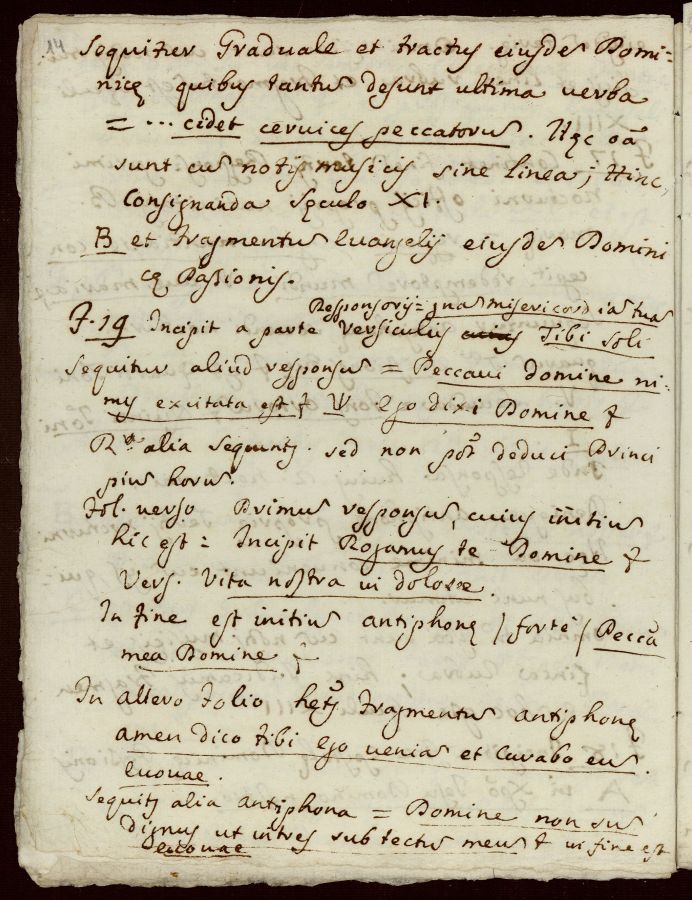 14
Sequitur Graduale et tractus eiusdē Domi=
nicę quibus tantū desunt ultima verba
= ... cidet cervices peccatorū. Hęc oā
sunt cū notis musicis sine linea; Hinc
Consignanda Sęculo XI.
B et fragmentū Evangelij eiusdē Domini
cę Passionis.
Responsorij = misericordiā tuā
F. 19 Incipit a parte Versiculi cuius Tibi soli
Sequitur aliud responsū = Peccavi domine ni-
mis excitata est & V Ego dixi Domine &
R alia sequunt. sed non pōt deduci Princi
piū horū.
Fol. verso Primū responsū, cuius initiū
hic est = Incipit Rogamus te Domine &
Vers. Vita nostra in dolore.
In fine est initiū antiphonę / forte / Peccā
mea Domine &
In altero Folio fragmentū antiphonę
amen dico tibi Ego veniā et curabo eū.
Evovae.
Sequit alia antiphona = Domine non sū
dignus ut intres sub tectū meū & in fine est
evovae